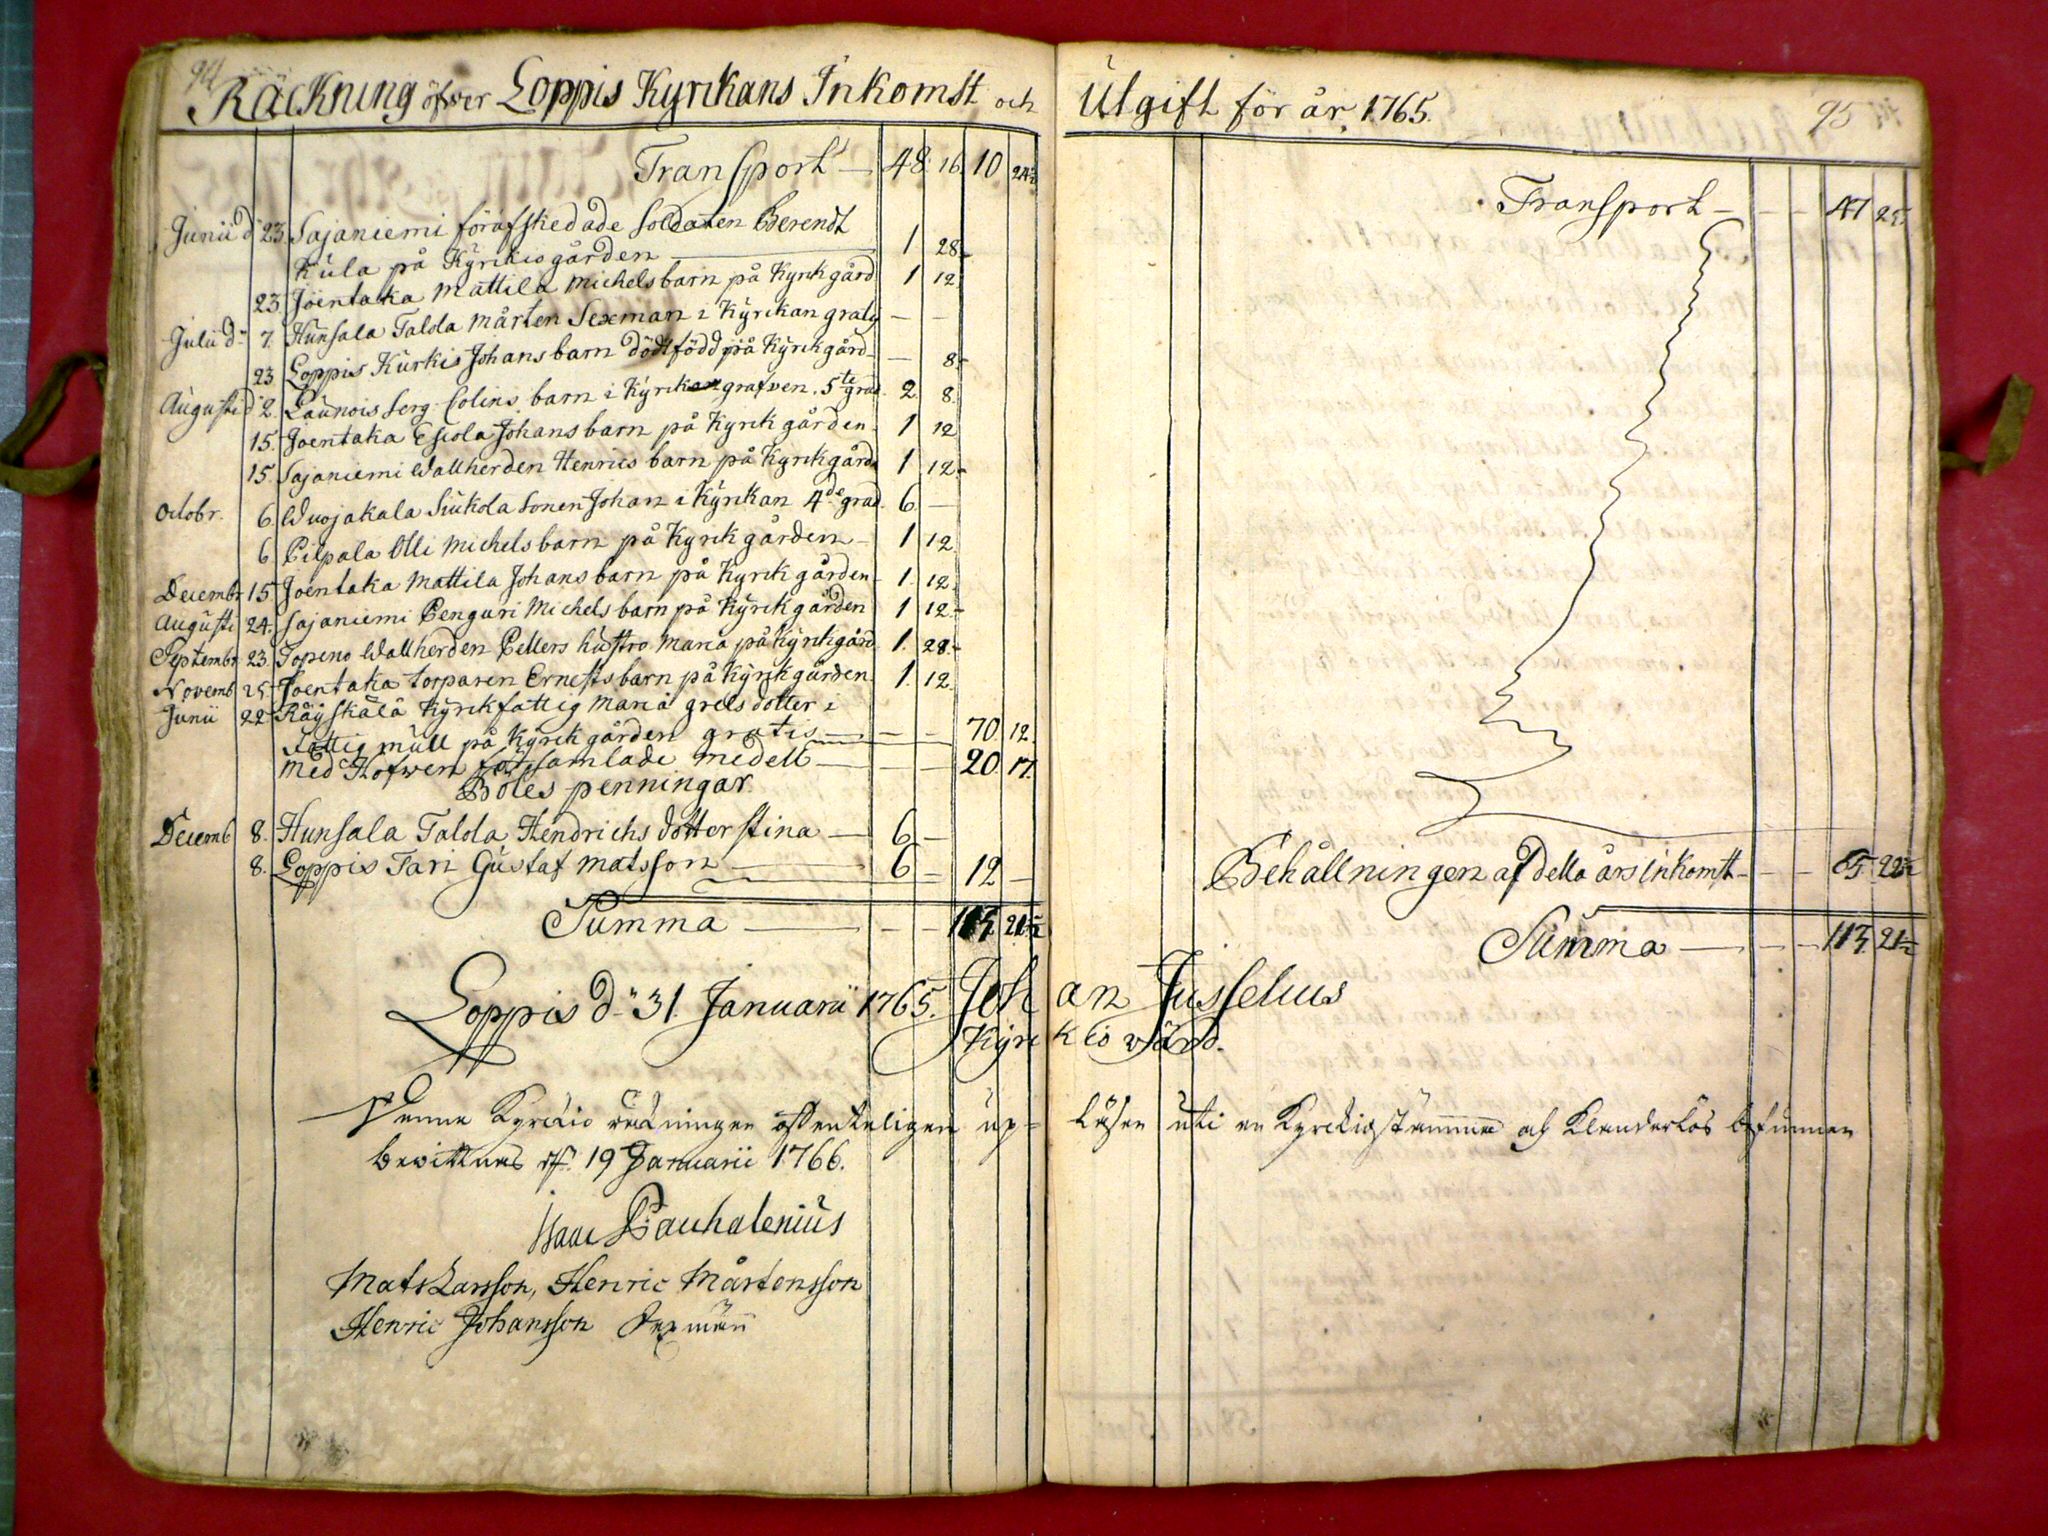 94
Räckning öfwer Loppis Kyrckans Inkomst och
Transport — 48. 16. 10 24½
Junii d 23. Sajaniemi förafskedade Soldaten Berendt
Kula på Kyrkiogården — 1 28.
23 Joentaka Mattila Michels barn på Kyrckgård 1 12.
Julii d 7. Hunsala Talola Mårten Sexman i Kyrckan — —
23 Loppis Kurkis Johans barn dödfödd på Kyrckgård — 8.
Augusti d 2. Launois Serg. Colins barn i Kyrckan grafven. 5te grad. 2 8.
15. Joentaka Eskola Johans barn på Kyrckgården. 1 12
15. Sajaniemi Wallherden Henrics barn på Kyrckgård 1 12.
Octobr. 6. Wuojakala Siukola Sonen Johan i Kyrckan 4de grad. 6 —
6 Pilpala Olli Michels barn på Kyrckgården — 1 12.
Decembr 15 Joentaka Mattila Johans barn på Kyrckgården. 1. 12.
Augusti 24. Sajaniemi Penguri Michels barn på Kyrckgården 1 12.
Septembr 23. Topeno Wallherden Petters hustro Maria på Kyrckgård 1. 28.
Novemb 25. Joentaka torparen Ernests barn på Kyrckgården. 1. 12.
Junii 22 Räyskälä Kyrckfattig Maria grels dotter i
Fattig mull på Kyrckgården gratis — — — 70. 12.
Med Hofwen samlade medell — — 20 17.
Böles penningar.
Decemb 8. Hunsala Talola Hendrichs dotter Stina — 6 —
8. Loppis Tari Gustaf Matsson — 6 — 12 —
Summa — — — 113. 21½
Loppis d. 31. Januarii 1765.
Denna Kyrckio räkningen offenteligen up-
bewittnas d. 19 Januarii 1766.
Isaac Pacchalenius
Mats Larsson, Henric Mårtensson
Henric Johansson Sexmän
Utgift för år 1765.
95
Transport — — — 47 25
Behållningen af detta års inkomst — — — 65. 22½
Summa — — — 113. 21½
Johan Jusselius
Kyrckiovärd.
läsen uti en Kyrckiostämma och Klanderlös befunnen